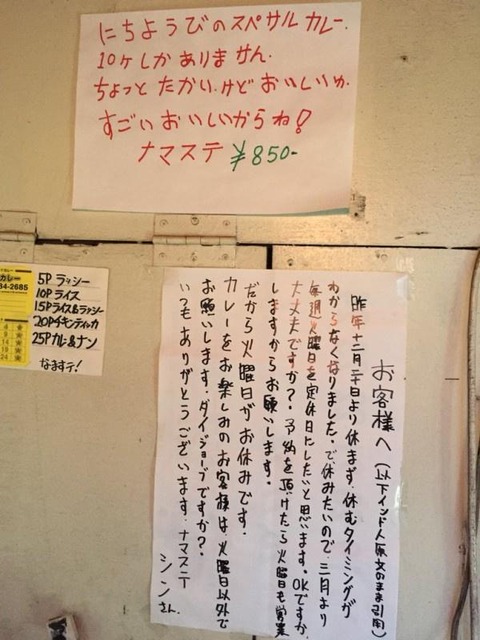 にちようびのスペサルカレー.
10ケしかありません.
ちょっとたかい.けどおいしいゆ.
すごいおいしいからね!
ナマステ ¥850-
カレー
84-2685
5P ラッシー
10P ライス
15P ライス&ラッシー
20P チキンティカ
25P カレー&ナン
なますて!
お客様へ(以下インド人原文のまま引用)
昨年十二月二十日より休まず.休むタイミングが
わからなくなりました.で休みたいので.三月より
毎週火曜日を定休日にしたいと思います。OKですか.
大丈夫ですか?.予約を頂けたら火曜日も営業
しますからお願いします.
だから火曜日がお休みです.
カレーをお楽しみのお客様は火曜日以外で
お願いします.ダイジョーブですか?.
いつもありがとうございます.ナマステ
シンさん.